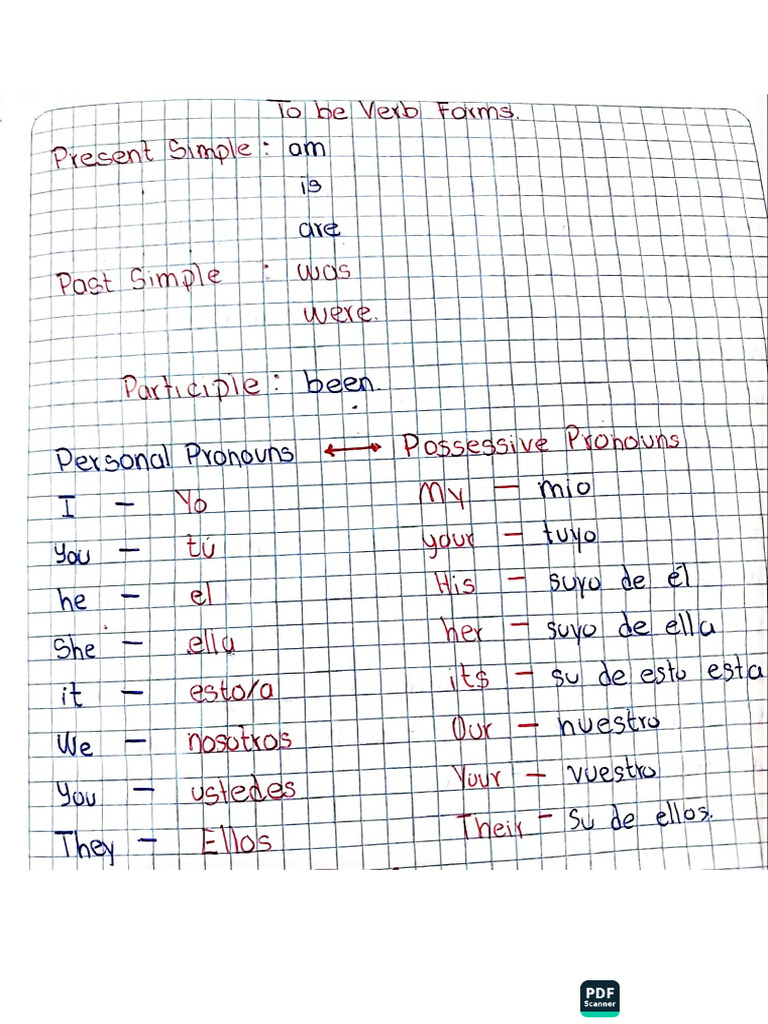 To be Verb Forms.
Present Simple: am
is
are
Past Simple : was
were.
Participle: been.
Personal Pronouns ↔ Possessive Pronouns
I — Yo My — mio
You — tú your — tuyo
he — el His — suyo de él
She — ella her — suyo de ella
it — esto/a its — su de esto esta
We — nosotros Our — nuestro
You — ustedes Your — vuestro
They — Ellos Their — su de ellos.
PDF
Scanner